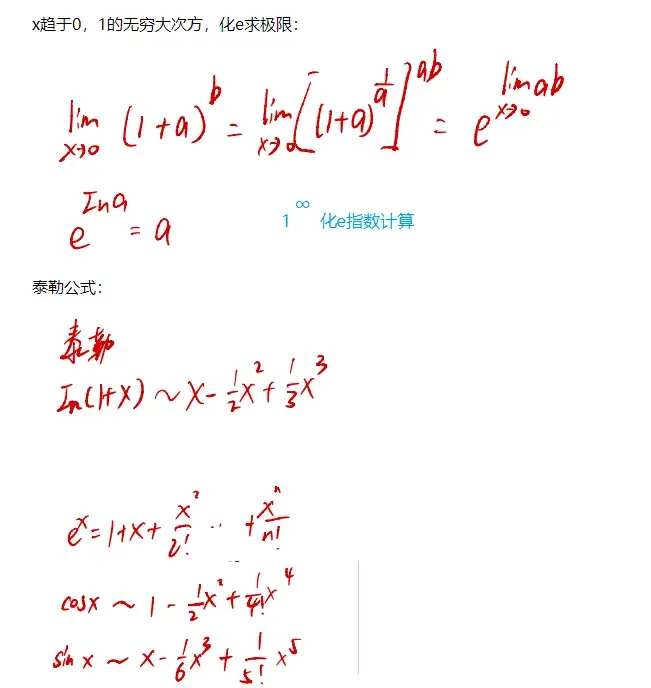 x趋于0，1的无穷大次方，化e求极限：
lim x→0 (1+a)^b = lim x→0 [(1+a)^(1/a)]^ab = e^(lim x→0 ab)
e^(Ina) = a
1^∞ 化e指数计算
泰勒公式：
泰勒
In(1+x) ~ x - 1/2 x^2 + 1/3 x^3
e^x = 1+x+ x^2/2! ·· + x^n/n!
cosx ~ 1 - 1/2 x^2 + 1/4! x^4
sin x ~ x - 1/6 x^3 + 1/5! x^5